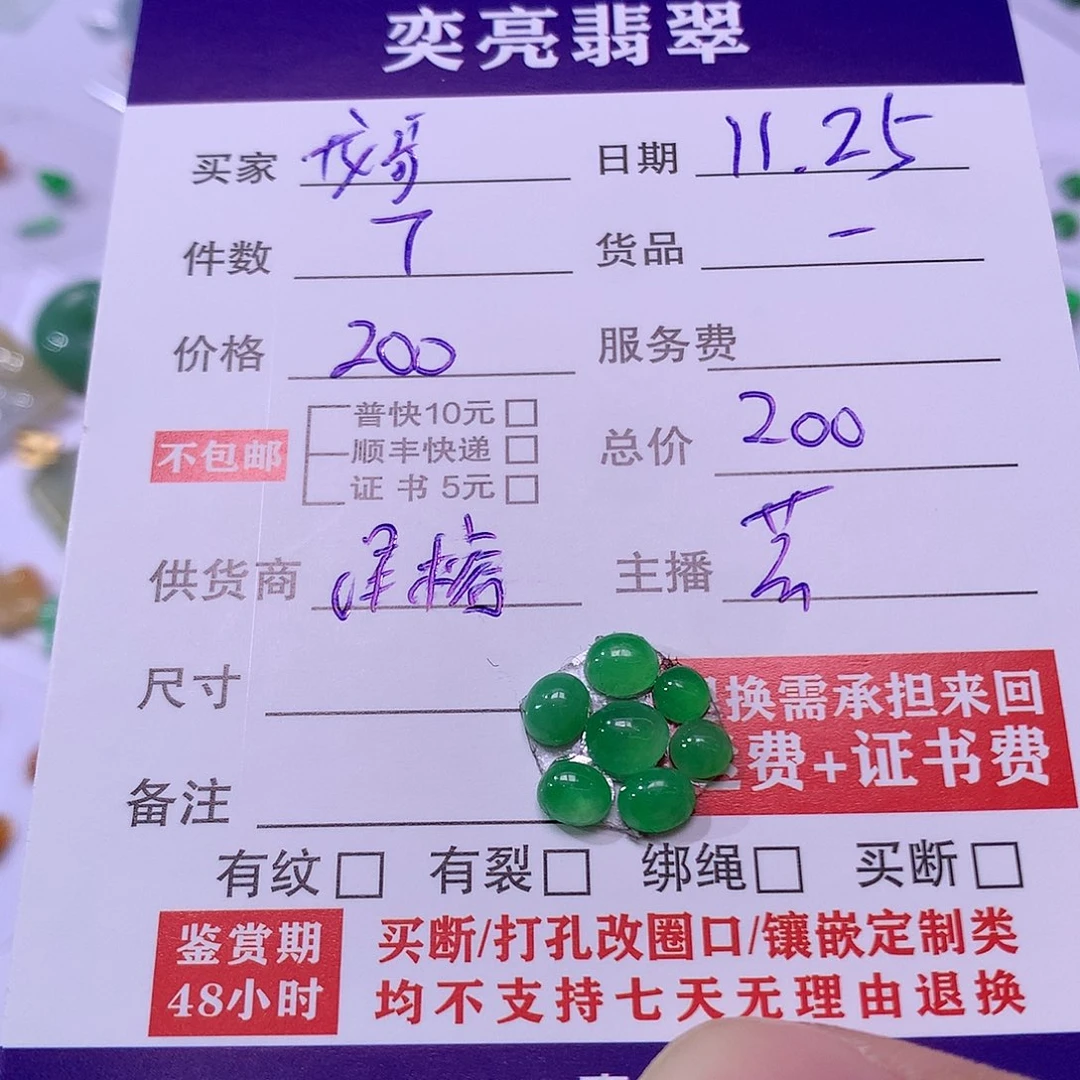 奕亮翡翠
买家 龙哥 日期 11.25
件数 7 货品 一
价格 200 服务费
普快10元
不包邮 顺丰快递 总价 200
证书 5元
供货商 主播
尺寸 换需承担来回
费+证书费
备注
有纹 有裂 绑绳 买断
鉴赏期 买断/打孔改圈口/镶嵌定制类
48小时 均不支持七天无理由退换